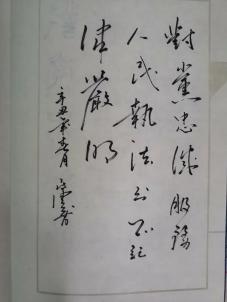 對黨忠誠服務
人民執法公正紀
律嚴明
辛丑年